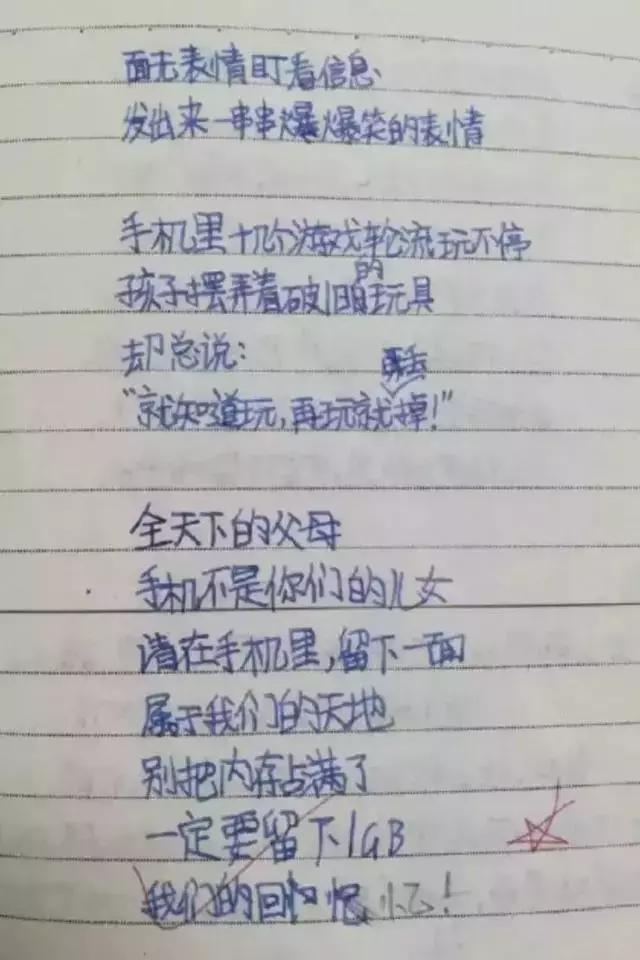 面无表情盯着信息
发出来一串串爆爆笑的表情
手机里十几个游戏轮流玩不停
孩子摆弄着破旧的玩具
却总说:
“就知道玩,再玩就丢掉!”
全天下的父母
手机不是你们的儿女
请在手机里,留下一面
属于我们的天地
别把内存占满了
一定要留下1GB
我们的回忆!